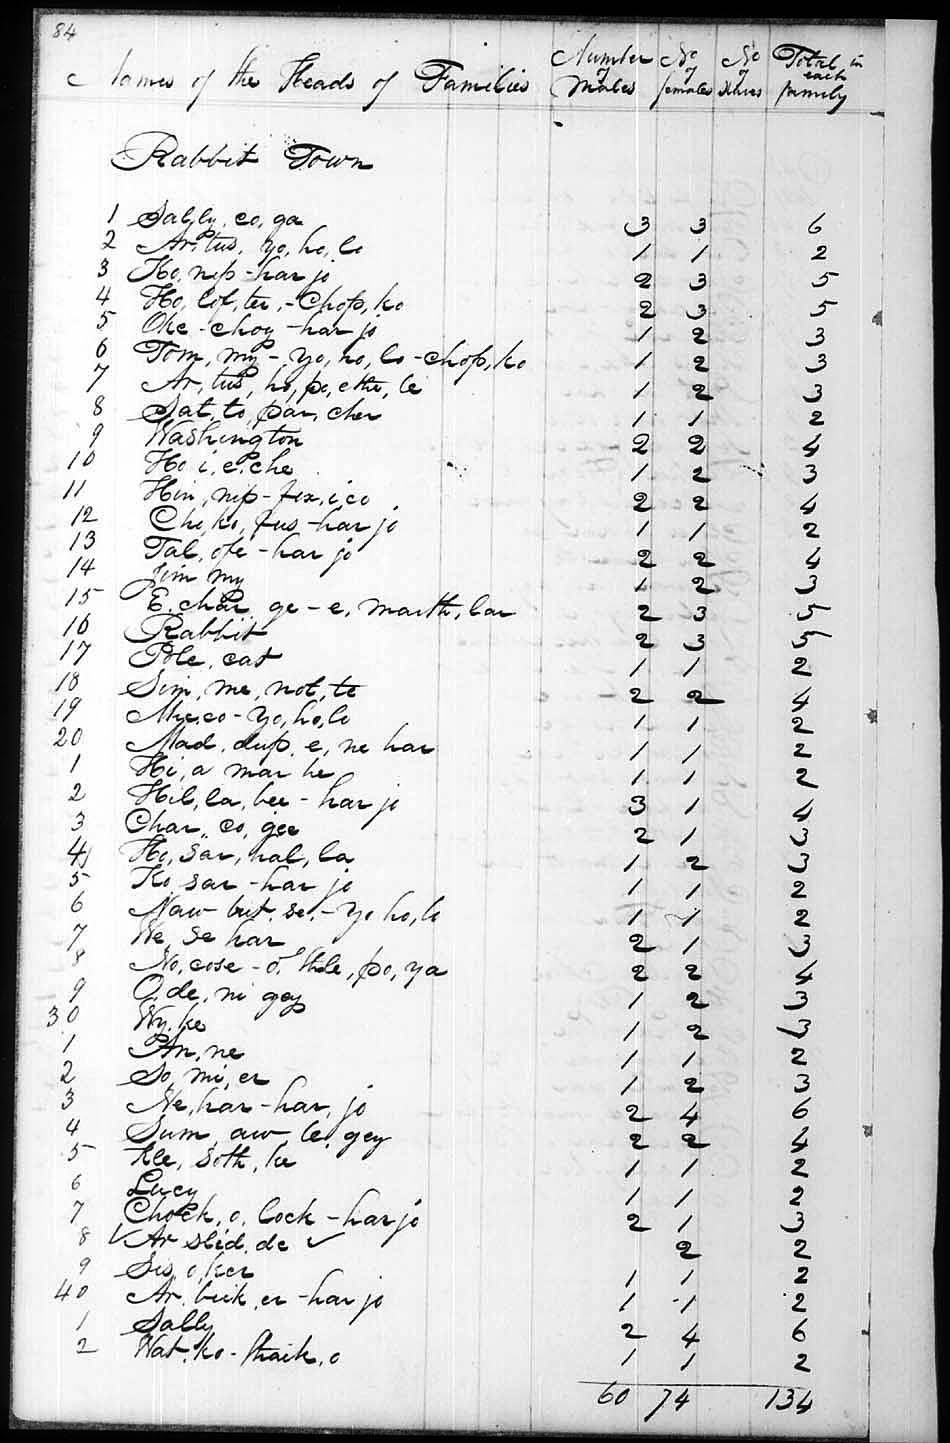 84
Names of the Heads of Families Number of Males No of females No of Slaves Total in each family
Rabbit Town
1 Sally, co, ga 3 3 6
2 Ar, tus, yo, ho, lo 1 1 2
3 Ko, nip - har jo 2 3 5
4 Ho, lof, ter, - Chop, ko 2 3 5
5 Oke - choy - har jo 1 2 3
6 Tom, my - yo, ho, lo - chop, ko 1 2 3
7 Ar, tus, ho, po, eth, le 1 2 3
8 Sat, to, par, cher 1 1 2
9 Washington 2 2 4
10 Ho i, e, che 1 2 3
11 Hin, nip - fix, i co 2 2 4
12 Cho, ko, fus - har jo 1 1 2
13 Tal, ofe - har jo 2 2 4
14 Jim my 1 2 3
15 E, char ge - e, marth, lar 2 3 5
16 Rabbit 2 3 5
17 Pole, cat 1 1 2
18 Sim, me, not, te 2 2 4
19 Mic, co - yo, ho, lo 1 1 2
20 Mad, dup, e, ne har 1 1 2
1 Hi, a mar he 1 1 2
2 Hil, la, bee - har jo 3 1 4
3 Char, co, gee 2 1 3
4 Ho, sar, hal, la 1 2 3
5 Ko sar - har jo 1 1 2
6 Naw but, se, - yo ho, lo 1 1 2
7 We, se har 2 1 3
8 No, cose - o, thle, po, ya 2 2 4
9 O, de, ni gey 1 2 3
30 Wy, ke 1 2 3
1 An, ne 1 1 2
2 So, mi, er 1 2 3
3 Ne, har - har, jo 2 4 6
4 Sum, aw le, gey 2 2 4
5 Kle, soth, ke 1 1 2
6 Lucy 1 1 2
7 Chock, o, lock - har jo 2 1 3
8 ✓ Ar slid, de ✓ 2 2
9 Sis, o, ker 1 1 2
40 Ar, beik, er - har jo 1 1 2
1 Sally 2 4 6
2 Wat, ko - thaik, o 1 1 2
60 74 134